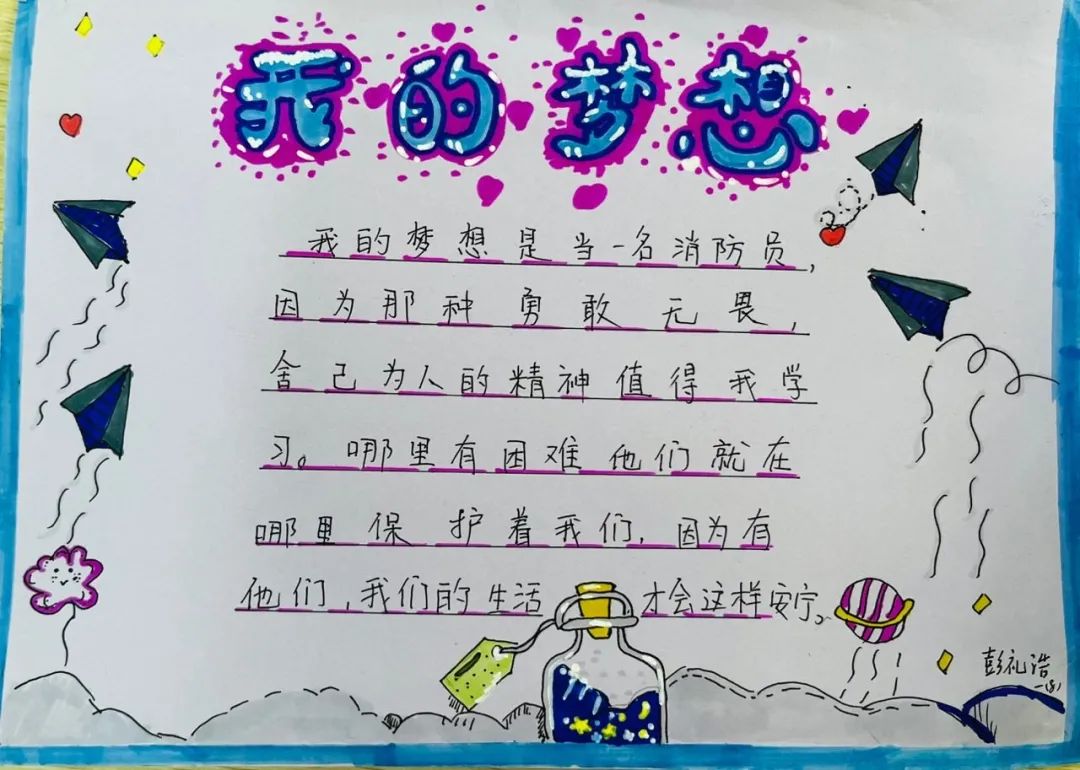 我的梦想
我的梦想是当一名消防员,
因为那种勇敢无畏,
舍己为人的精神值得我学
习。哪里有困难他们就在
哪里保护着我们,因为有
他们,我们的生活才会这样安宁。
彭礼浩